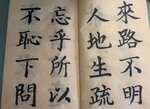 來路不明
人地生疏
忘乎所以
不恥下問